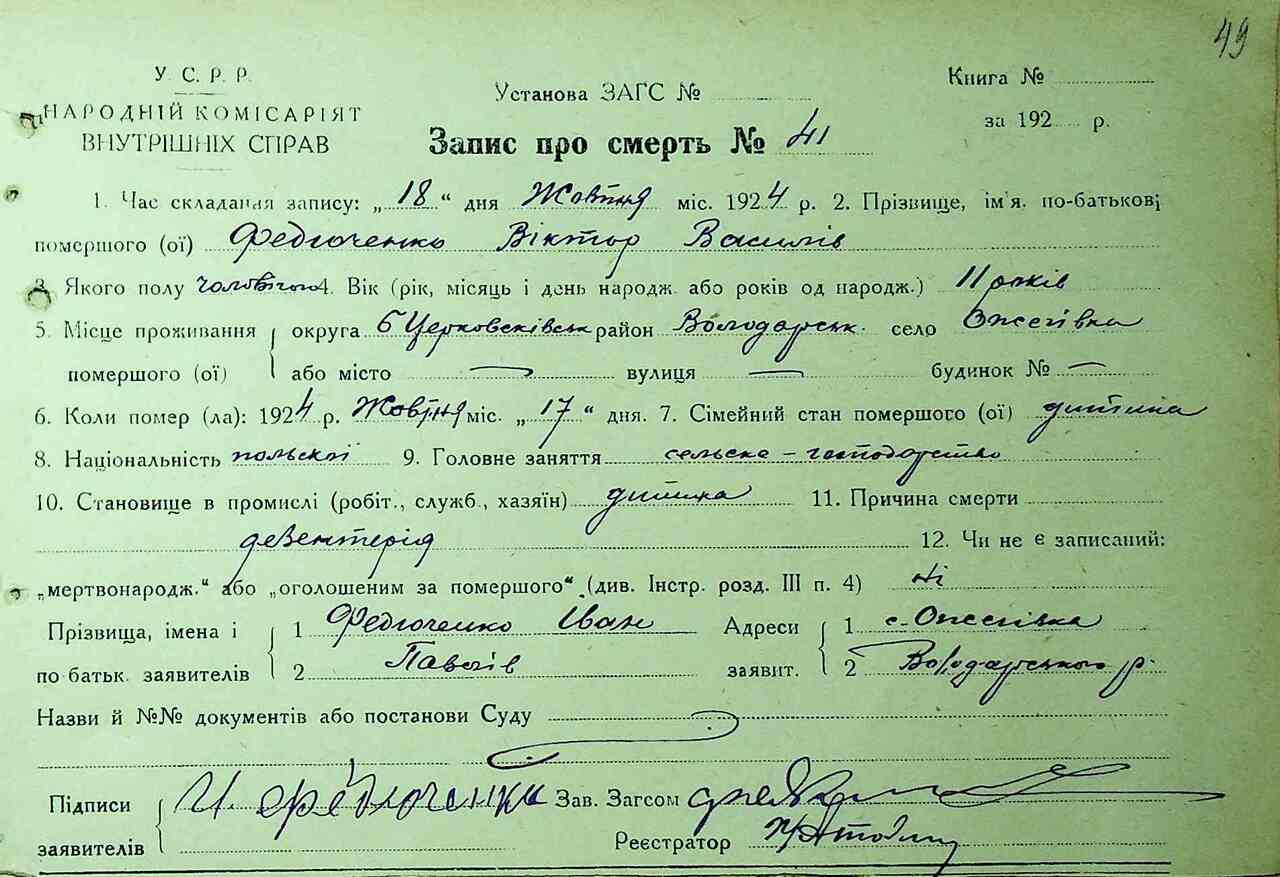 49
У. С. Р. Р.
НАРОДНІЙ КОМІСАРІЯТ
ВНУТРІШНІХ СПРАВ
Установа ЗАГС №
Книга №
за 192 р.
Запис про смерть № 41
1. Час складання запису: „18" дня Жовтня міс. 1924 р. 2. Прізвище, ім'я, по-батькові
помершого (ої) Федюченко Віктор Василів
3. Якого полу чоловічого 4. Вік (рік, місяць і день народж. або років од народж.) 11 років
5. Місце проживання округа БЦерковсківськ район Володарськ. село Ожегівка
помершого (ої) або місто — вулиця — будинок № —
6. Коли помер (ла): 1924 р. Жовтня міс. „17" дня. 7. Сімейний стан помершого (ої) дитина
8. Національність польскої 9. Головне заняття сельске-господарство
10. Становище в промислі (робіт., служб., хазяїн) дитина 11. Причина смерти
дезентерія 12. Чи не є записаний:
„мертвонародж." або „оголошеним за помершого" (див. Інстр. розд. III п. 4) ні
Прізвища, імена і 1 Федюченко Іван Адреси 1 с. Ожегівка
по батьк. заявителів 2 Павлів заявит. 2 Володарського р.
Назви й №№ документів або постанови Суду
Підписи И Федюченко Зав. Загсом
заявителів Реєстратор